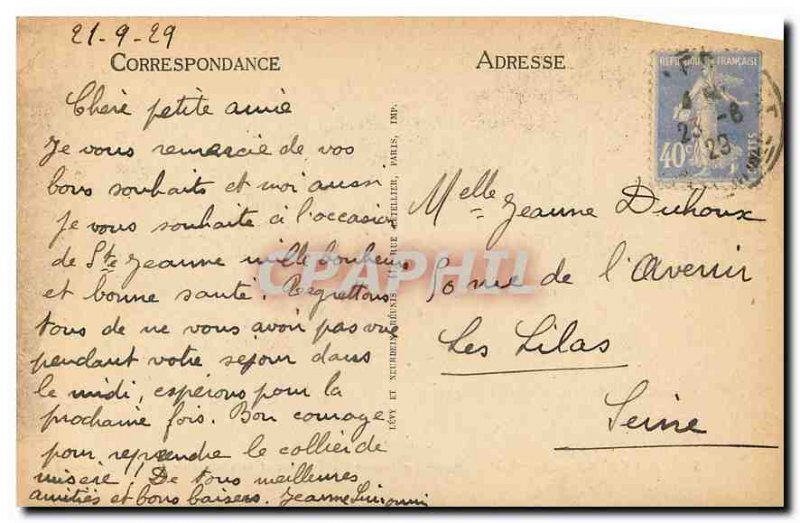 21-9-29
CORRESPONDANCE
Chère petite amie
Je vous remercie de vos
bons souhaits et moi aussi
je vous souhaite à l'occasion
de Ste Jeanne mille bonheurs
et bonne santé. Regrettons
tous de ne vous avoir pas vue
pendant votre séjour dans
le midi, espérons pour la
prochaine fois. Bon courage
pour reprendre le collier de
misère! De tous meilleures
amitiés et bons baisers. Jeanne
LÉVY ET NEURDEIN RÉUNIS, RUE LETELLIER, PARIS, IMP.
ADRESSE
RÉPUBLIQUE FRANÇAISE
40c
POSTES
23 -8
29
Melle Jeanne Duhoux
50 rue de l'Avenir
Les Lilas
Seine
CPAPHIL